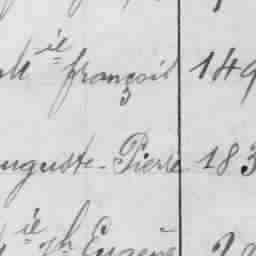 M^ie françois 149
uguste-Pierre 183
j^ph Eugène